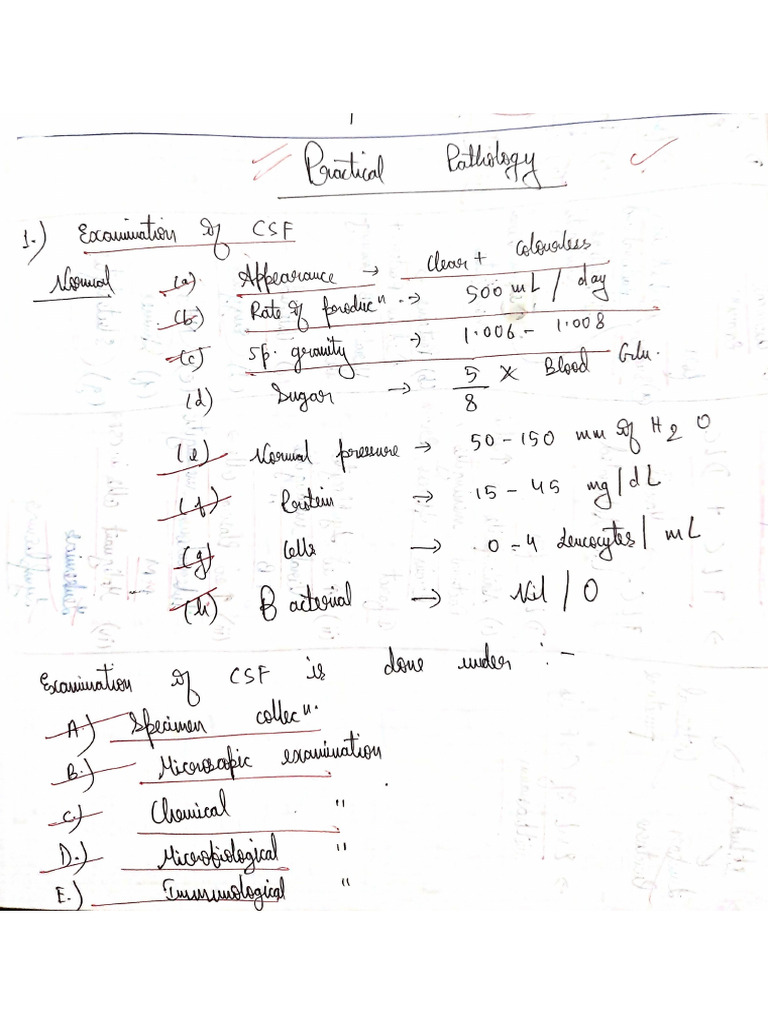 1
Practical Pathology
1.) Examination of CSF
Normal (a) Appearance → Clear + colourless
(b) Rate of producⁿ. → 500 mL / day
(c) Sp. gravity → 1.006 - 1.008
(d) Sugar → 5/8 X Blood Glu.
(e) Normal pressure → 50 - 150 mm of H2O
(f) Protein → 15 - 45 mg/dL
(g) Cells → 0 - 4 leucocytes / mL
(h) Bacterial → Nil / 0
Examination of CSF is done under :-
A.) Specimen collecⁿ.
B.) Microscopic examination
C.) Chemical "
D.) Microbiological "
E.) Immunological "